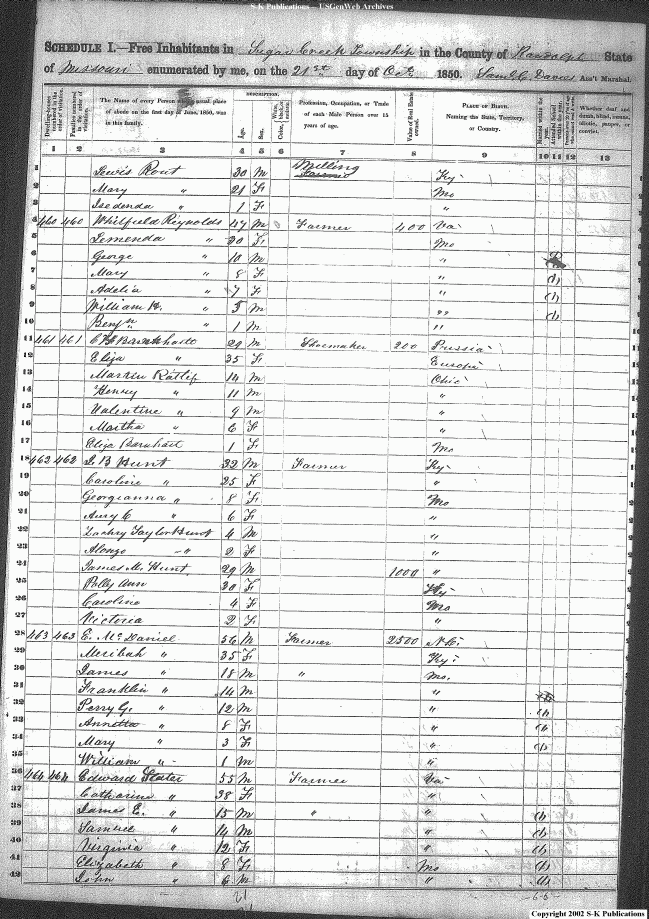 S-K Publications -- USGenWeb Archives
SCHEDULE I.—Free Inhabitants in Sugar Creek Township in the County of Randolph State
of Missouri enumerated by me, on the 21st day of Oct. 1850. Ass't Marshal.
DESCRIPTION.
Dwelling-houses numbered in the order of visitation. Families numbered in the order of visitation. The Name of every Person whose usual place of abode on the first day of June, 1850, was in this family. Age. Sex. Color, Profession, Occupation, or Trade of each Male Person over 15 years of age. Value of Real Estate owned. PLACE OF BIRTH. Naming the State, Territory, or Country. Married within the year. Whether deaf and dumb, blind, insane, idiotic, pauper, or convict.
1 2 3 4 5 6 7 8 9 10 11 12 13
1 Lewis Rout 30 M Milling Farmer Ky
2 Mary " 21 F Mo
3 1 F "
4 460 460 Whitfield Reynolds 47 M Farmer 400 Va
5 " 30 F Mo
6 George " 10 M "
7 Mary " 8 F "
8 Adelia " 7 F "
9 William H. " 5 M "
10 Benjn " 1 M "
11 461 461 29 M Shoemaker 200 Prussia
12 Eliza " 35 F Europe
13 Martin Ratlif 14 M Ohio
14 Henry " 11 M "
15 Valentine " 9 M "
16 Martha " 6 F "
17 Eliza Barnhart 1 F Mo
18 462 462 J. B Hunt 32 M Farmer Ky
19 Caroline " 25 F "
20 Georgianna " 8 F Mo
21 " 6 F "
22 Zachry Taylor Hunt 4 M "
23 Alonzo " 2 F "
24 James M. Hunt 29 M 1000 "
25 Polly Ann 30 F Ky
26 Caroline 4 F Mo
27 Victoria 2 F "
28 463 463 E. McDaniel 56 M Farmer 2500 N.C.
29 Meribah " 35 F Ky.
30 James " 18 M " Mo.
31 Franklin " 14 M "
32 Perry G. " 12 M "
33 Annetta " 8 F "
34 Mary " 3 F "
35 William " 1 M "
36 464 464 Edward Slater 55 M Farmer Va
37 Catharine " 38 F "
38 James E. " 15 M " "
39 Samuel " 14 M "
40 Virginia " 12 F "
41 Elizabeth " 8 F Mo
42 John " 6 M "
Copyright 2002 S-K Publications